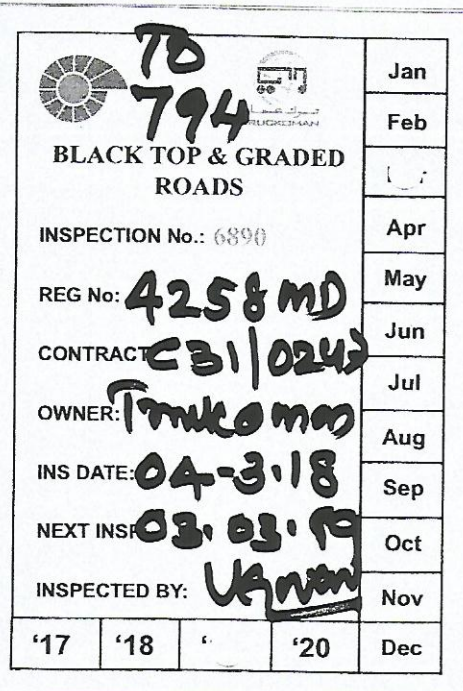 TO
794
تـرك عمـان
TRUCKOMAN
BLACK TOP & GRADED
ROADS
INSPECTION No.: 6890
REG No: 4258 MD
CONTRACT C31/0242
OWNER: Truckoman
INS DATE: 04-3.18
NEXT INSP 03.03.19
INSPECTED BY:
'17 '18 '20
Jan
Feb
Apr
May
Jun
Jul
Aug
Sep
Oct
Nov
Dec